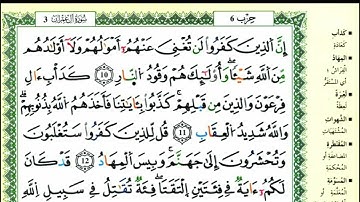 سُورَةُ آلِ عِمْرَانَ 3
حِزْب 6
إِنَّ ٱلَّذِينَ كَفَرُواْ لَن تُغْنِيَ عَنْهُمُۥٓ أَمْوَٰلُهُمْ وَلَآ أَوْلَٰدُهُم
مِّنَ ٱللَّهِ شَيْـًٔا وَأُوْلَٰٓئِكَ هُمْ وَقُودُ ٱلنَّارِ 10 كَدَأْبِ ءَالِ
فِرْعَوْنَ وَٱلَّذِينَ مِن قَبْلِهِمْ كَذَّبُواْ بِـَٔايَٰتِنَا فَأَخَذَهُمُ ٱللَّهُ بِذُنُوبِهِمْ
وَٱللَّهُ شَدِيدُ ٱلْعِقَابِ 11 قُل لِّلَّذِينَ كَفَرُواْ سَتُغْلَبُونَ
وَتُحْشَرُونَ إِلَىٰ جَهَنَّمَ وَبِيسَ ٱلْمِهَادُ 12 قَدْ كَانَ
لَكُمُۥٓ ءَايَةٌ فِي فِئَتَيْنِ ٱلْتَقَتَا فِئَةٌ تُقَٰتِلُ فِي سَبِيلِ ٱللَّهِ
كَدَأْبِ
الْمِهَادُ
لَعِبْرَةً
الشَّهَوَاتِ
الْمُقَنْطَرَةِ
الْمُسَوَّمَةِ